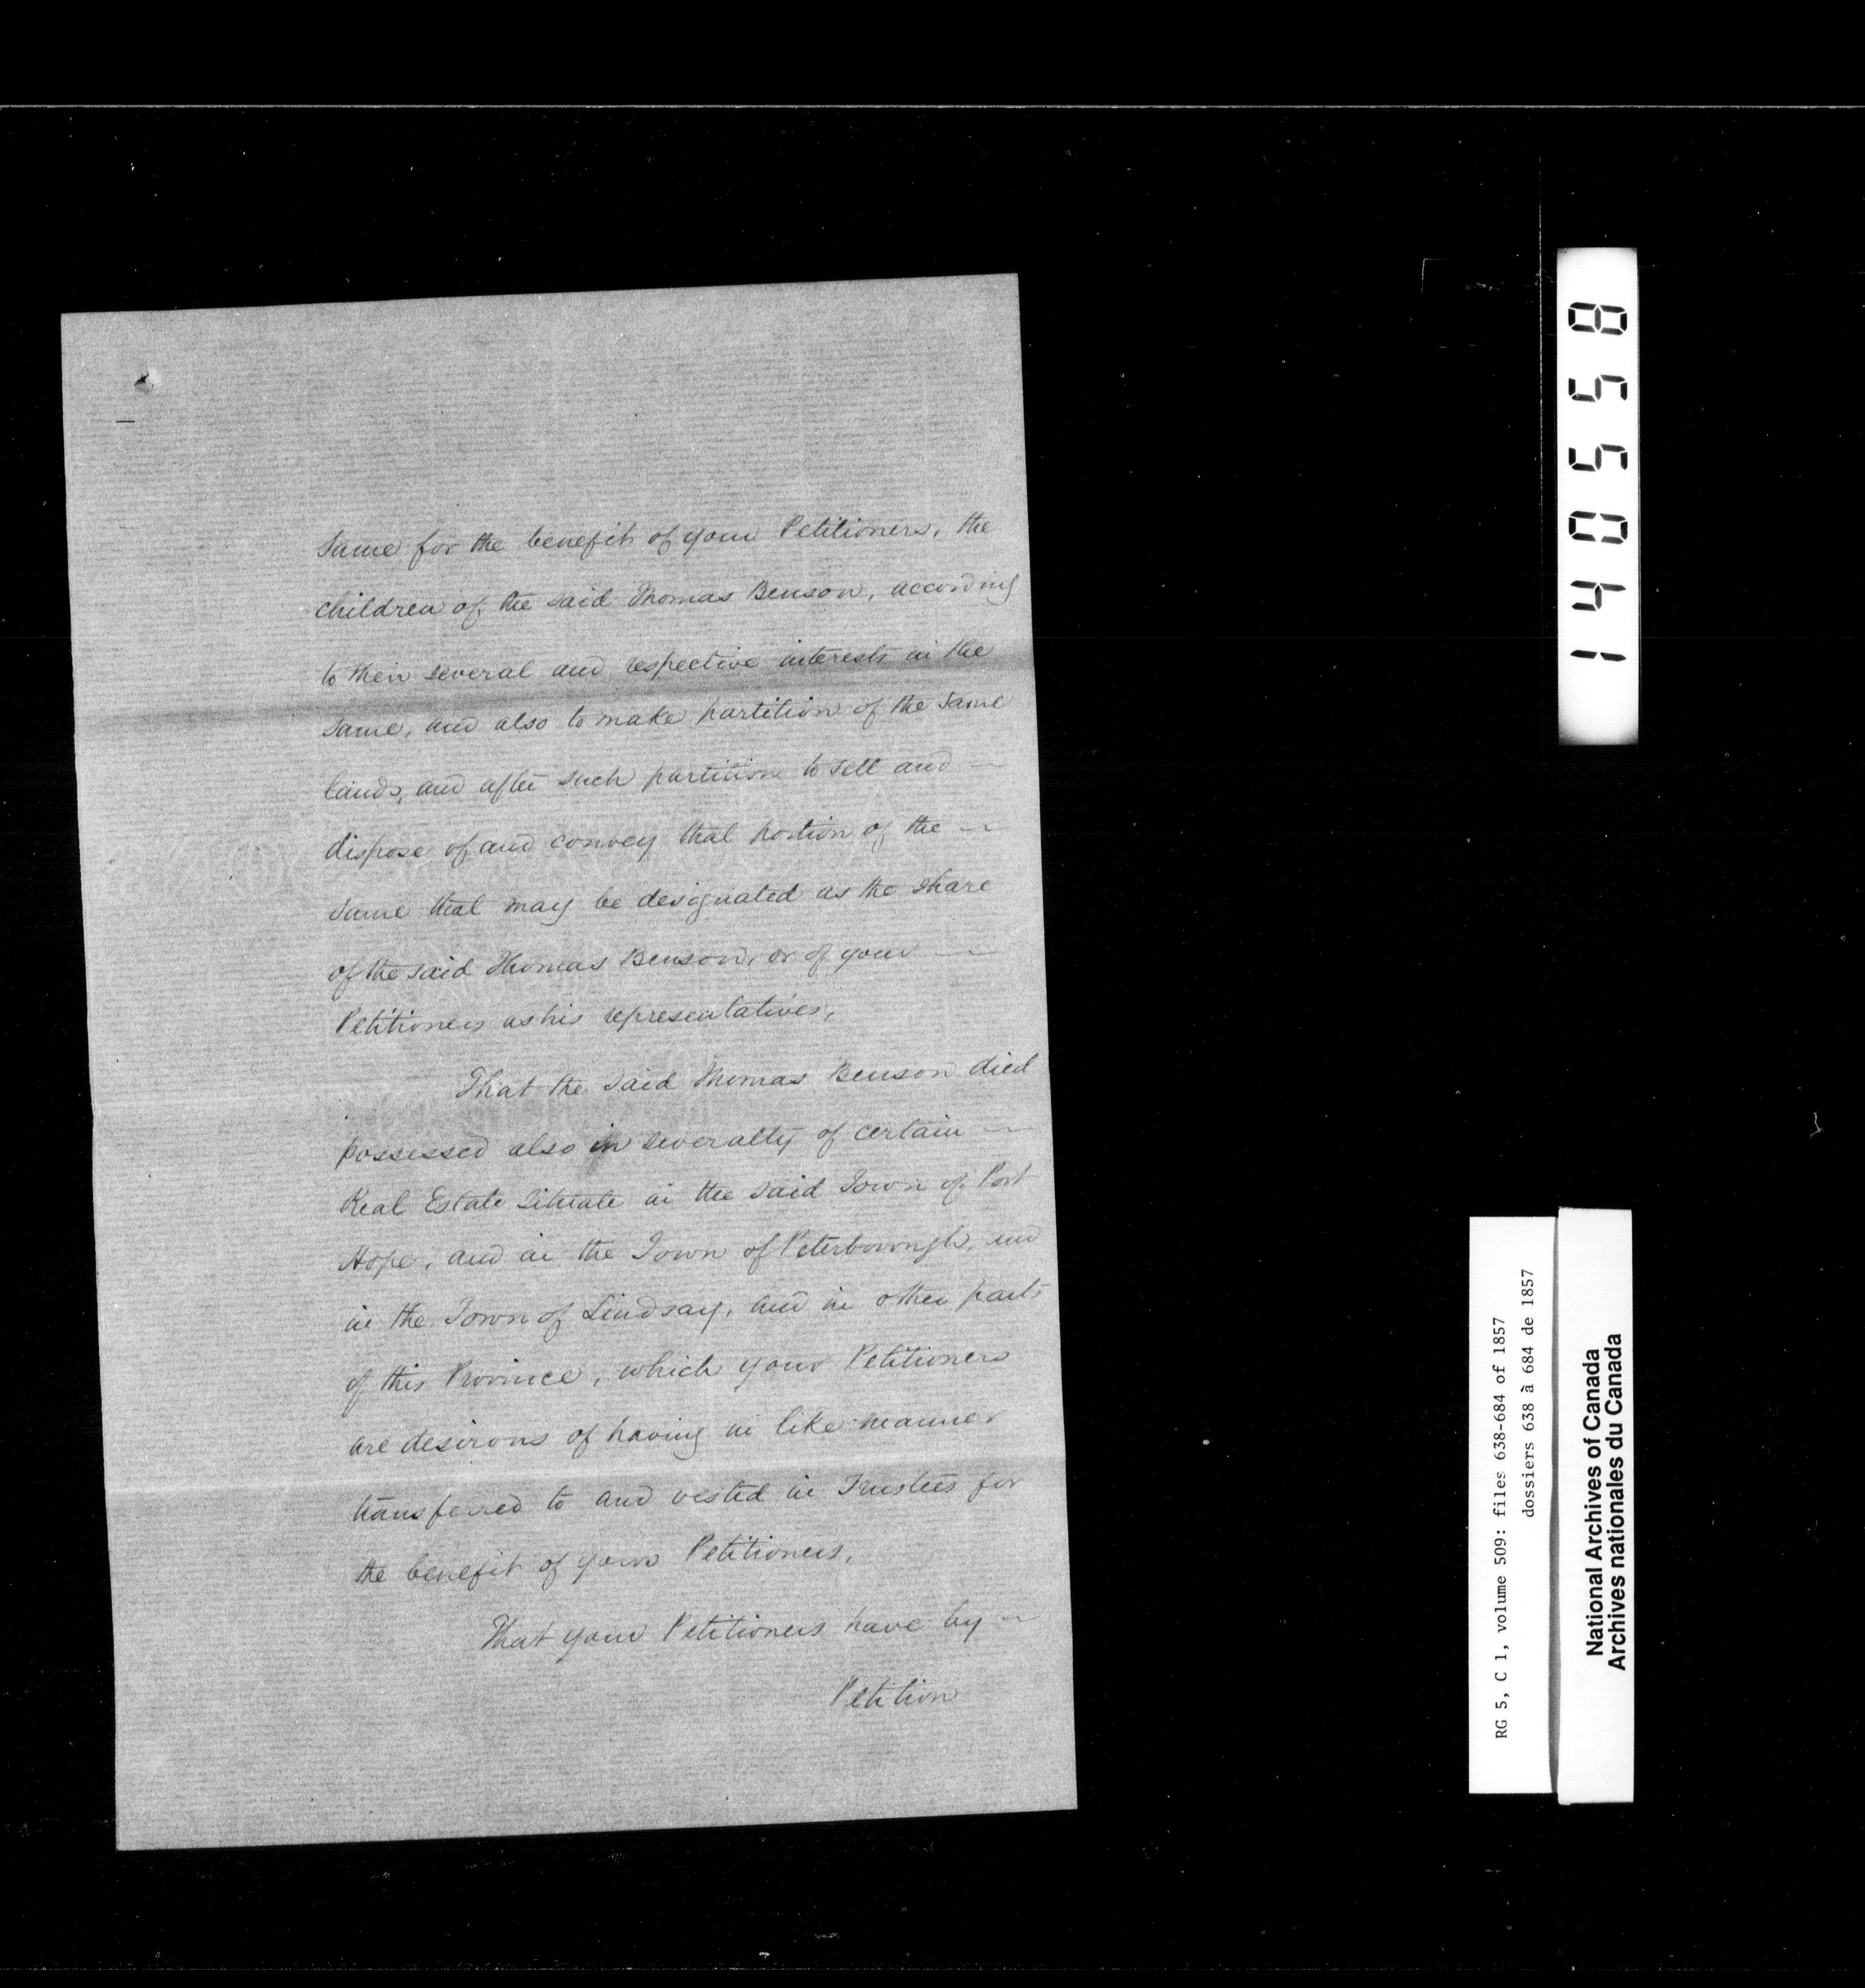 Same for the benefit of your Petitioners, the
children of the said Thomas Benson, according
to their several and respective interests in the
same, and also to make partition of the same
lands, and after such partition to sell and —
dispose of and convey that portion of the —
same that may be designated as the share
of the said Thomas Benson, or of your —
Petitioners as his representatives,
That the said Thomas Benson died
possessed also in severalty of certain —
Real Estate situate in the said Town of Port
Hope, and in the Town of Peterborough, and
in the Town of Lindsay, and in other parts
of this Province, which your Petitioners
are desirous of having in like manner
transferred to and vested in Trustees for
the benefit of your Petitioners,
That your Petitioners have by —
Petition
140558
RG 5, C 1, volume 509: files 638-684 of 1857
dossiers 638 à 684 de 1857
National Archives of Canada
Archives nationales du Canada